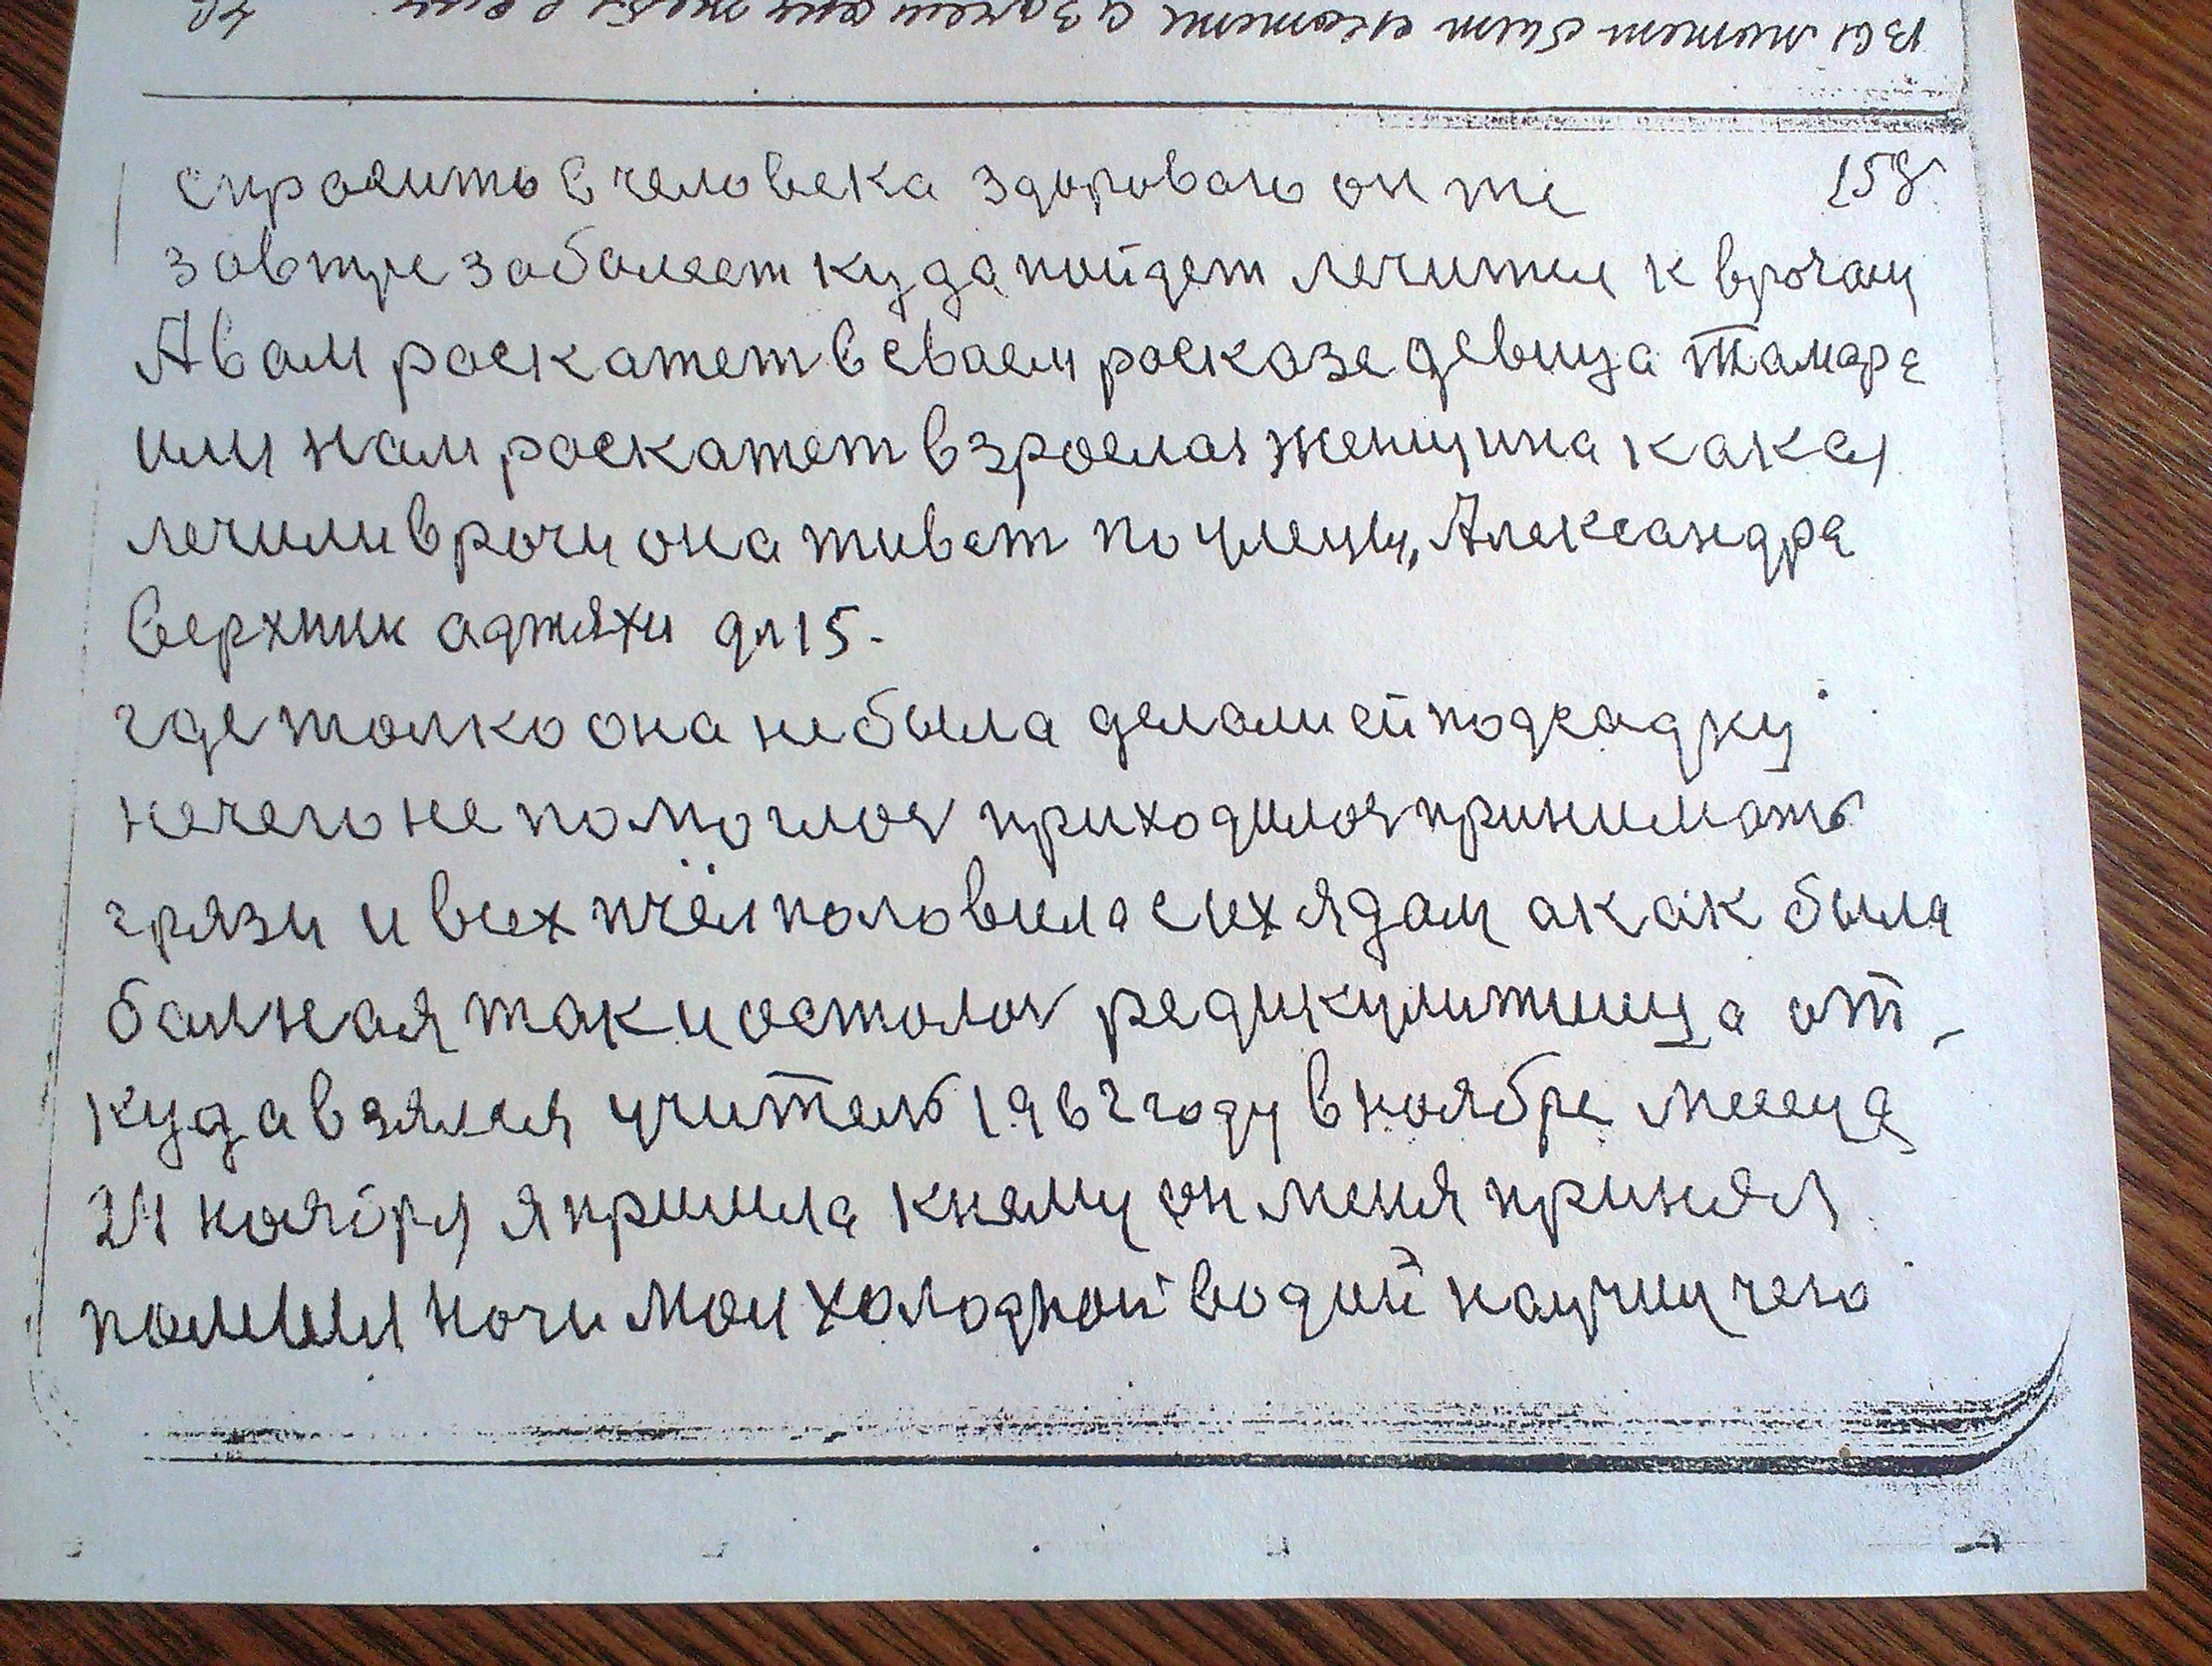 158
спросить в человека здороваго он же
завтре заболеет куда пойдет лечится к врочам
А вам роскажет в своем росказе девица Тамара
или нам роскажет взрослая женщина как ея
лечили врочи она живет по улецы, Александра
Верхник аджяхи дл 15.
где толко она не была делали ей подсадку
нечего не помоглося приходилося принимать
грязи и всех пчёл половила с их ядом а как была
болная так и осталося редикулитница от-
куда взялся учитель 1962 году в ноябре месеца
24 ноября я пришла к нему он меня принял
помыл ночи мои холодной водой научил чего